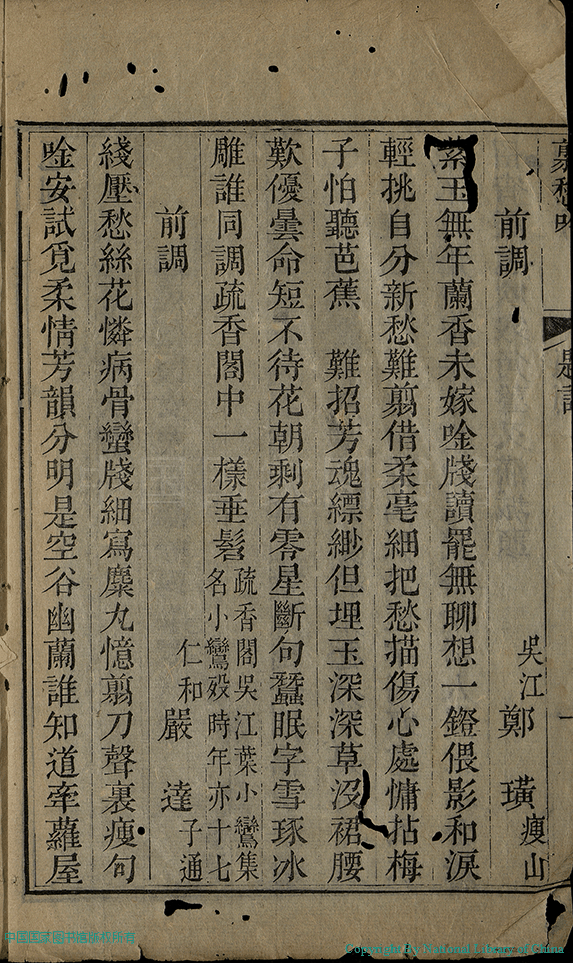 前調
吳江 鄭 璜 瘦山
紫玉無年蘭香未嫁唫牋讀罷無聊想一鐙偎影和淚
輕挑自分新愁難翦借柔毫細把愁描傷心處慵拈梅
子怕聽芭蕉 難招芳魂縹緲但埋玉深深草沒裙腰
歎優曇命短不待花朝剩有零星斷句蠶眠字雪琢冰
雕誰同調疏香閣中一樣垂髫
疏香閣吳江葉小鸞集
名小鸞歿時年亦十七
前調
仁和 嚴 達 子通
綫壓愁絲花憐病骨蠻牋細寫麋丸憶翦刀聲裏瘦句
唫安試覓柔情芳韻分明是空谷幽蘭誰知道牽蘿屋
Copyright By National Library of China